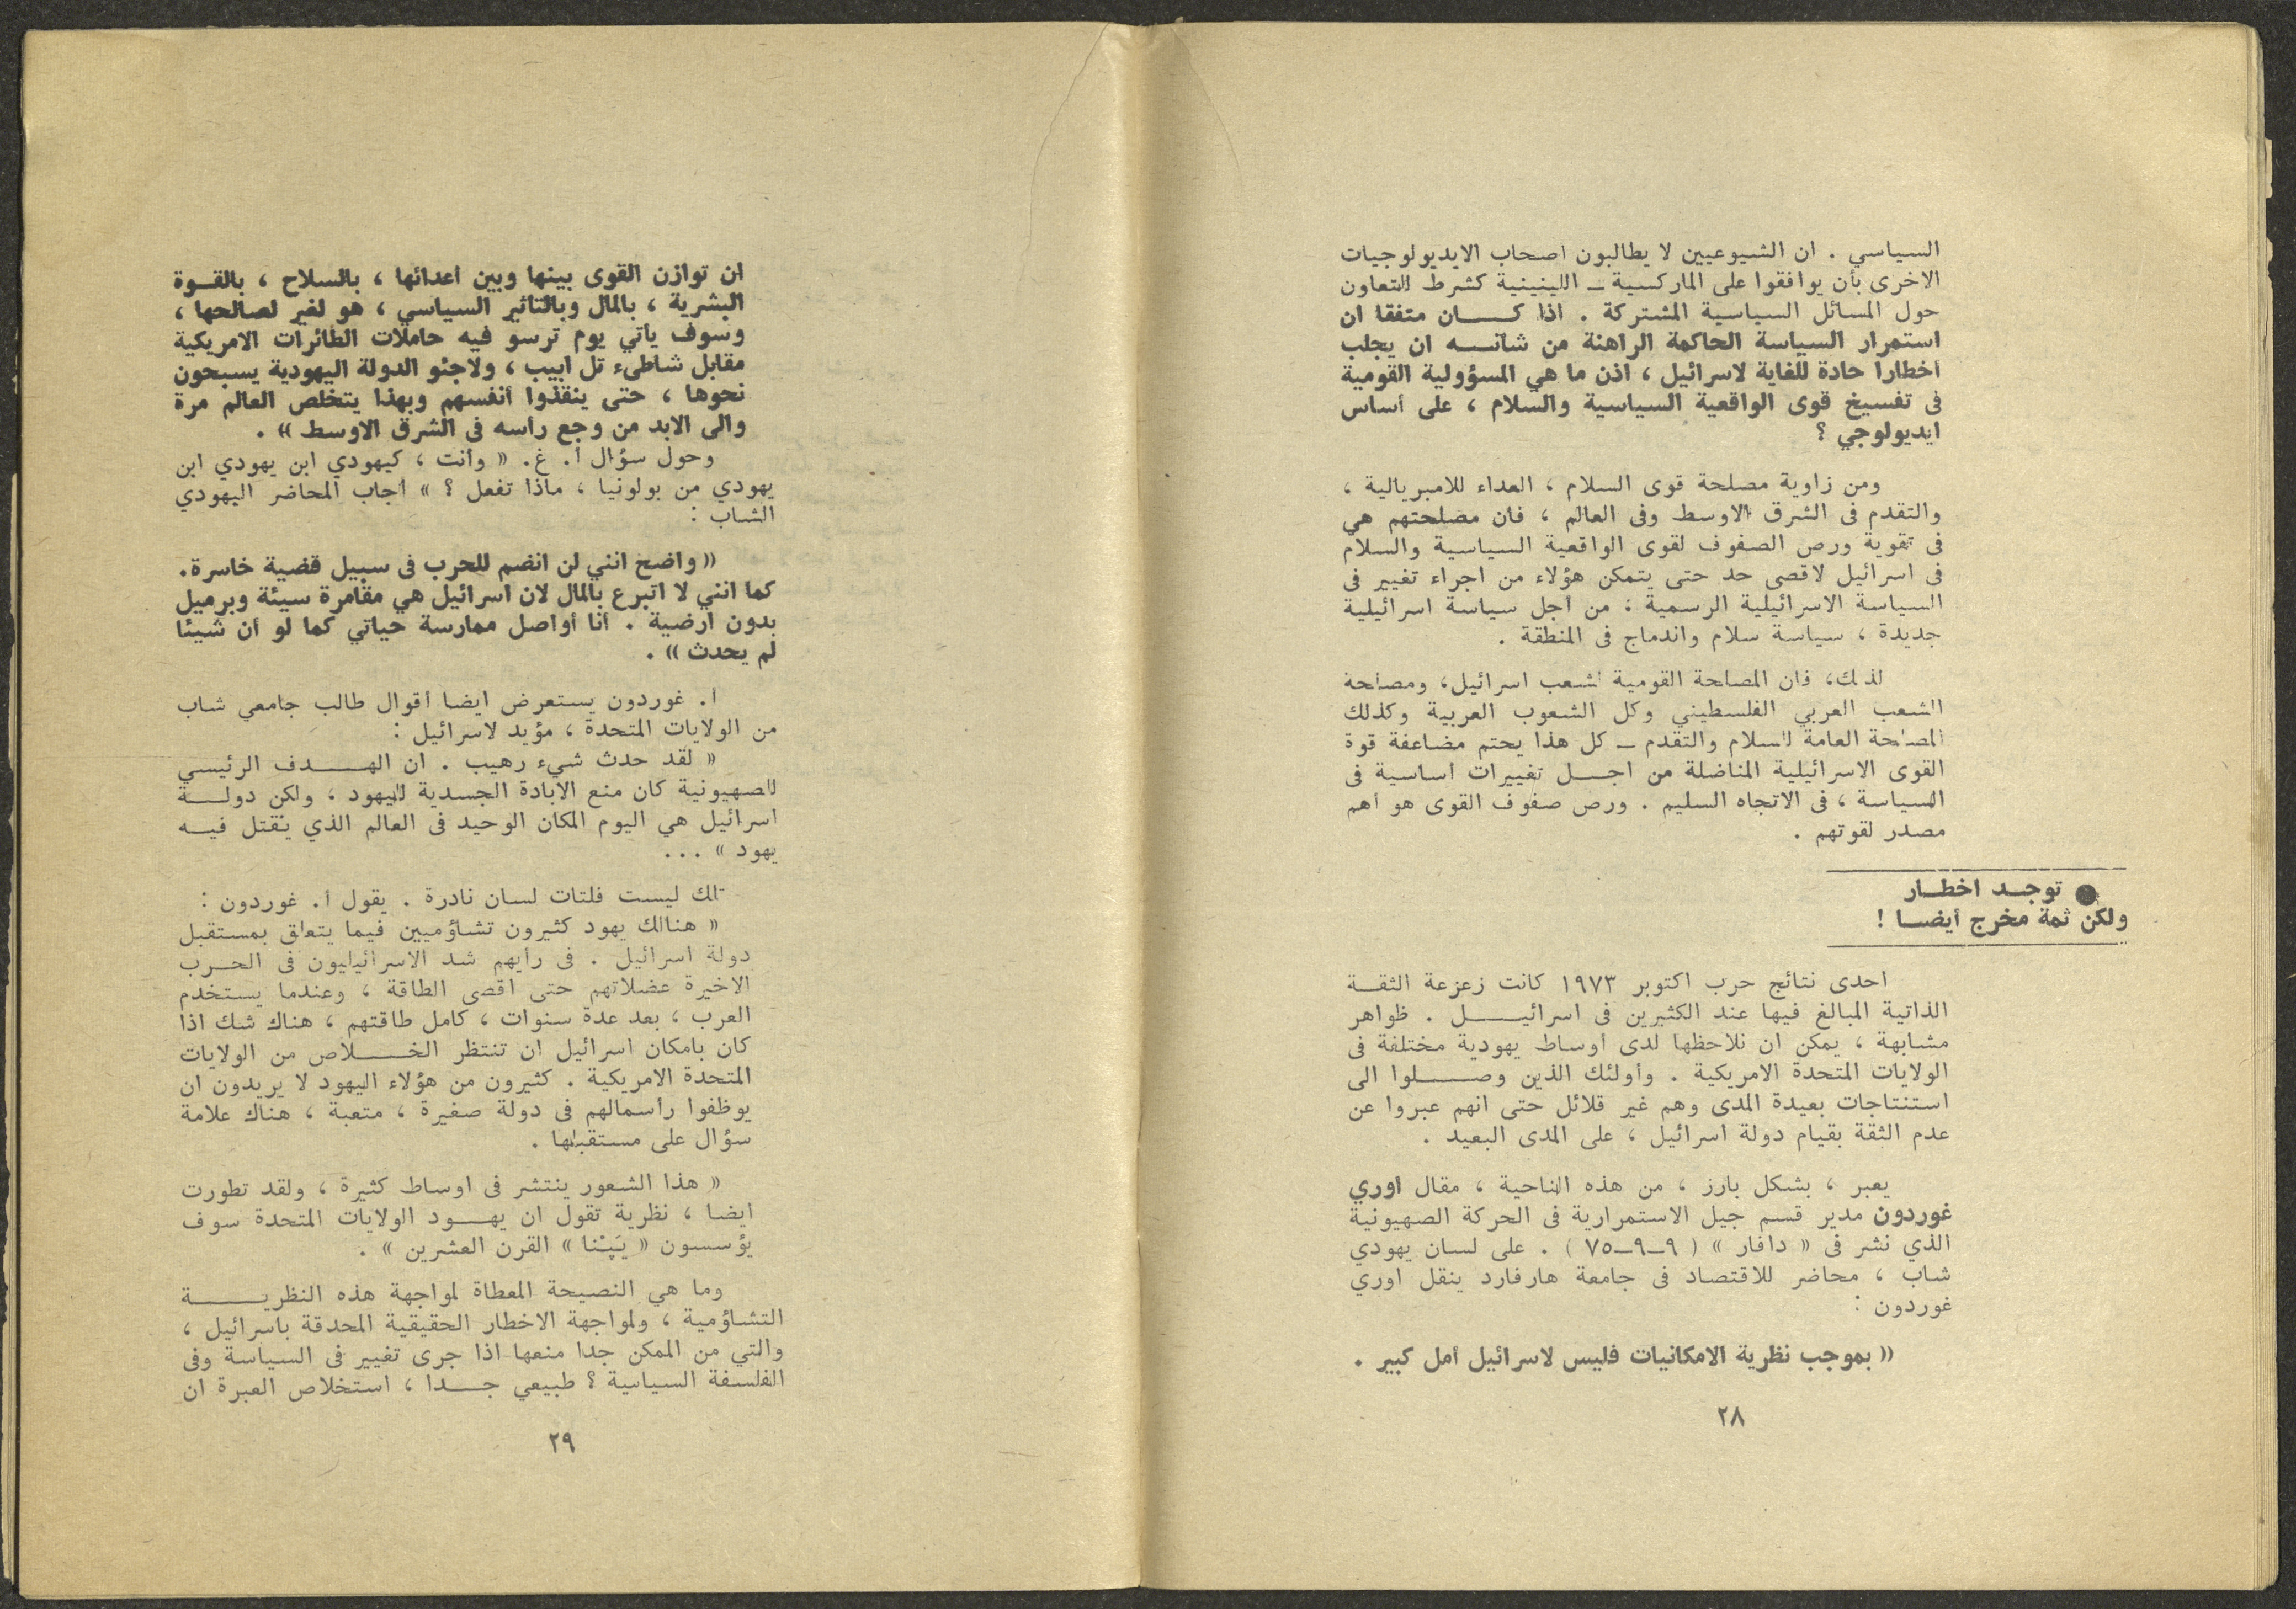 السياسي . ان الشيوعيين لا يطالبون اصحاب الايديولوجيات
الاخرى بأن يوافقوا على الماركسية ــ اللينينية كشرط للتعاون
حول المسائل السياسية المشتركة . اذا كــــان متفقا ان
استمرار السياسة الحاكمة الراهنة من شأنــه ان يجلب
أخطارا حادة للغاية لاسرائيل ، اذن ما هي المسؤولية القومية
فى تفسيخ قوى الواقعية السياسية والسلام ، على أساس
ايديولوجي ؟
ومن زاوية مصلحة قوى السلام ، العداء للامبريالية ،
والتقدم فى الشرق الاوسط وفى العالم ، فان مصلحتهم هي
فى تقوية ورص الصفوف لقوى الواقعية السياسية والسلام
فى اسرائيل لاقصى حد حتى يتمكن هؤلاء من اجراء تغيير فى
السياسة الاسرائيلية الرسمية ؛ من أجل سياسة اسرائيلية
جديدة ، سياسة سلام واندماج فى المنطقة .
لذلك، فان المصلحة القومية لشعب اسرائيل، ومصلحة
الشعب العربي الفلسطيني وكل الشعوب العربية وكذلك
المصلحة العامة للسلام والتقدم ــ كل هذا يحتم مضاعفة قوة
القوى الاسرائيلية المناضلة من اجــل تغييرات أساسية فى
السياسة ، فى الاتجاه السليم . ورص صفوف القوى هو أهم
مصدر لقوتهم .
● توجــد اخطــار
ولكن ثمة مخرج أيضــا !
احدى نتائج حرب اكتوبر ١٩٧٣ كانت زعزعة الثقــة
الذاتية المبالغ فيها عند الكثيرين فى اسرائيــــل . ظواهر
مشابهة ، يمكن ان نلاحظها لدى أوساط يهودية مختلفة فى
الولايات المتحدة الامريكية . وأولئك الذين وصـــلوا الى
استنتاجات بعيدة المدى وهم غير قلائل حتى انهم عبروا عن
عدم الثقة بقيام دولة اسرائيل ، على المدى البعيد .
يعبر ، بشكل بارز ، من هذه الناحية ، مقال اوري
غوردون مدير قسم جيل الاستمرارية فى الحركة الصهيونية
الذي نشر فى « دافار » ( ٩ــ٩ــ٧٥ ) . على لسان يهودي
شاب ، محاضر للاقتصاد فى جامعة هارفارد ينقل اوري
غوردون :
« بموجب نظرية الامكانيات فليس لاسرائيل أمل كبير .
٢٨
ان توازن القوى بينها وبين أعدائها ، بالسلاح ، بالقــوة
البشرية ، بالمال وبالتأثير السياسي ، هو لغير لصالحها ،
وسوف يأتي يوم ترسو فيه حاملات الطائرات الامريكية
مقابل شاطىء تل ابيب ، ولاجئو الدولة اليهودية يسبحون
نحوها ، حتى ينقذوا أنفسهم وبهذا يتخلص العالم مرة
والى الابد من وجع رأسه فى الشرق الاوسط » .
وحول سؤال أ. غ. « وأنت ، كيهودي ابن يهودي ابن
يهودي من بولونيا ، ماذا تفعل ؟ » أجاب المحاضر اليهودي
الشاب :
« واضح انني لن انضم للحرب فى سبيل قضية خاسرة.
كما انني لا اتبرع بالمال لان اسرائيل هي مقامرة سيئة وبرميل
بدون ارضية . أنا أواصل ممارسة حياتي كما لو ان شيئا
لم يحدث » .
أ. غوردون يستعرض ايضا أقوال طالب جامعي شاب
من الولايات المتحدة ، مؤيد لاسرائيل :
« لقد حدث شيء رهيب . ان الهـــدف الرئيسي
للصهيونية كان منع الابادة الجسدية لليهود ، ولكن دولــة
اسرائيل هي اليوم المكان الوحيد فى العالم الذي يُقتل فيــه
يهود » ...
تلك ليست فلتات لسان نادرة . يقول أ. غوردون :
« هنالك يهود كثيرون تشاؤميين فيما يتعلق بمستقبل
دولة اسرائيل . فى رأيهم شد الاسرائيليون فى الحــرب
الاخيرة عضلاتهم حتى اقصى الطاقة ، وعندما يستخدم
العرب ، بعد عدة سنوات ، كامل طاقتهم ، هناك شك اذا
كان بامكان اسرائيل ان تنتظر الخـــلاص من الولايات
المتحدة الامريكية . كثيرون من هؤلاء اليهود لا يريدون ان
يوظفوا رأسمالهم فى دولة صغيرة ، متعبة ، هناك علامة
سؤال على مستقبلها .
« هذا الشعور ينتشر فى اوساط كثيرة ، ولقد تطورت
ايضا ، نظرية تقول ان يهــود الولايات المتحدة سوف
يؤسسون « يَپْنا » القرن العشرين » .
وما هي النصيحة المعطاة لمواجهة هذه النظريــــة
التشاؤمية ، ولمواجهة الاخطار الحقيقية المحدقة باسرائيل ،
والتي من الممكن جدا منعها اذا جرى تغيير فى السياسة وفى
الفلسفة السياسية ؟ طبيعي جــدا ، استخلاص العبرة ان
٢٩